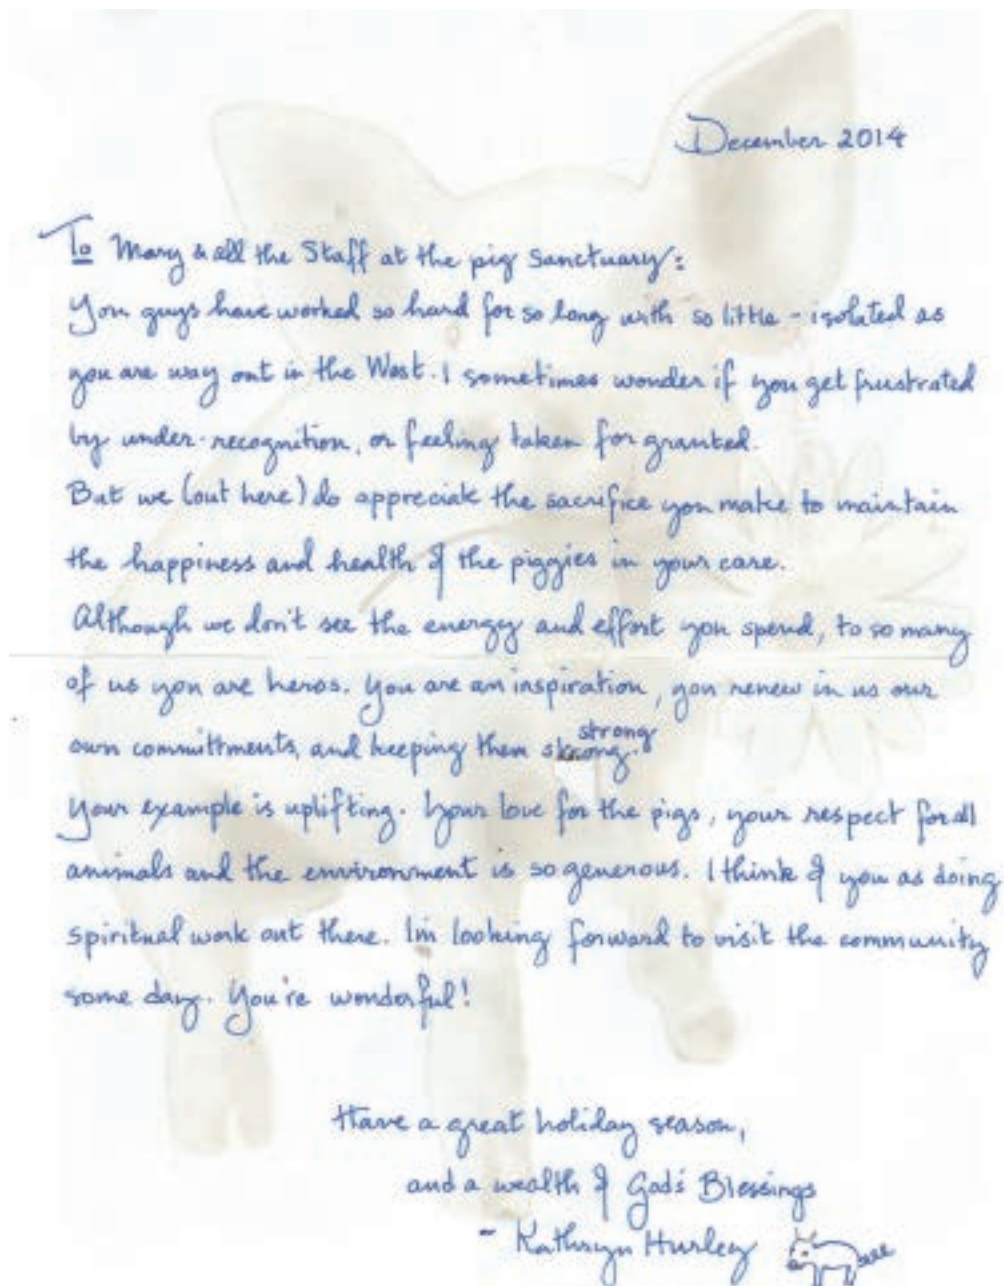 December 2014
To Mary & all the Staff at the pig sanctuary:
You guys have worked so hard for so long with so little - isolated as
you are way out in the West. I sometimes wonder if you get frustrated
by under-recognition, or feeling taken for granted.
But we (out here) do appreciate the sacrifice you make to maintain
the happiness and health of the piggies in your care.
Although we don't see the energy and effort you spend, to so many
of us you are heros. You are an inspiration, you renew in us our
own committments, and keeping them strong strong.
Your example is uplifting. Your love for the pigs, your respect for all
animals and the environment is so generous. I think of you as doing
spiritual work out there. I'm looking forward to visit the community
some day. You're wonderful!
Have a great holiday season,
and a wealth of God's Blessings
- Kathryn Hurley